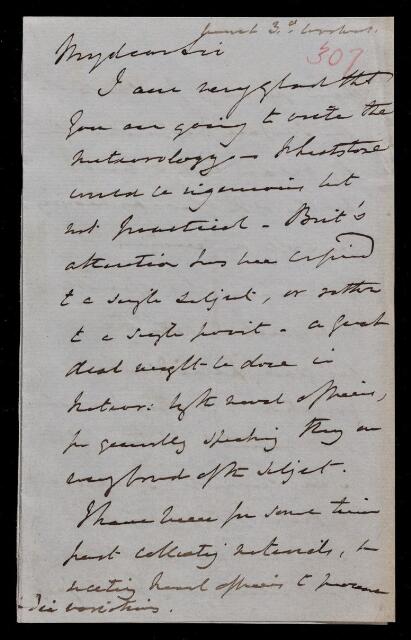 307
My dear Sir
I am very glad that
you are going to write the
Meteorology – Wheatstone
would be ingenious but
not practical – Birt's
attention has been confined
to a single subject, or rather
to a single point – a great
deal might be done in
Meteor: by the naval officers,
for generally speaking they are
very fond of the subject.
I have been for some time
past collecting materials, &
naval officers to
variations.